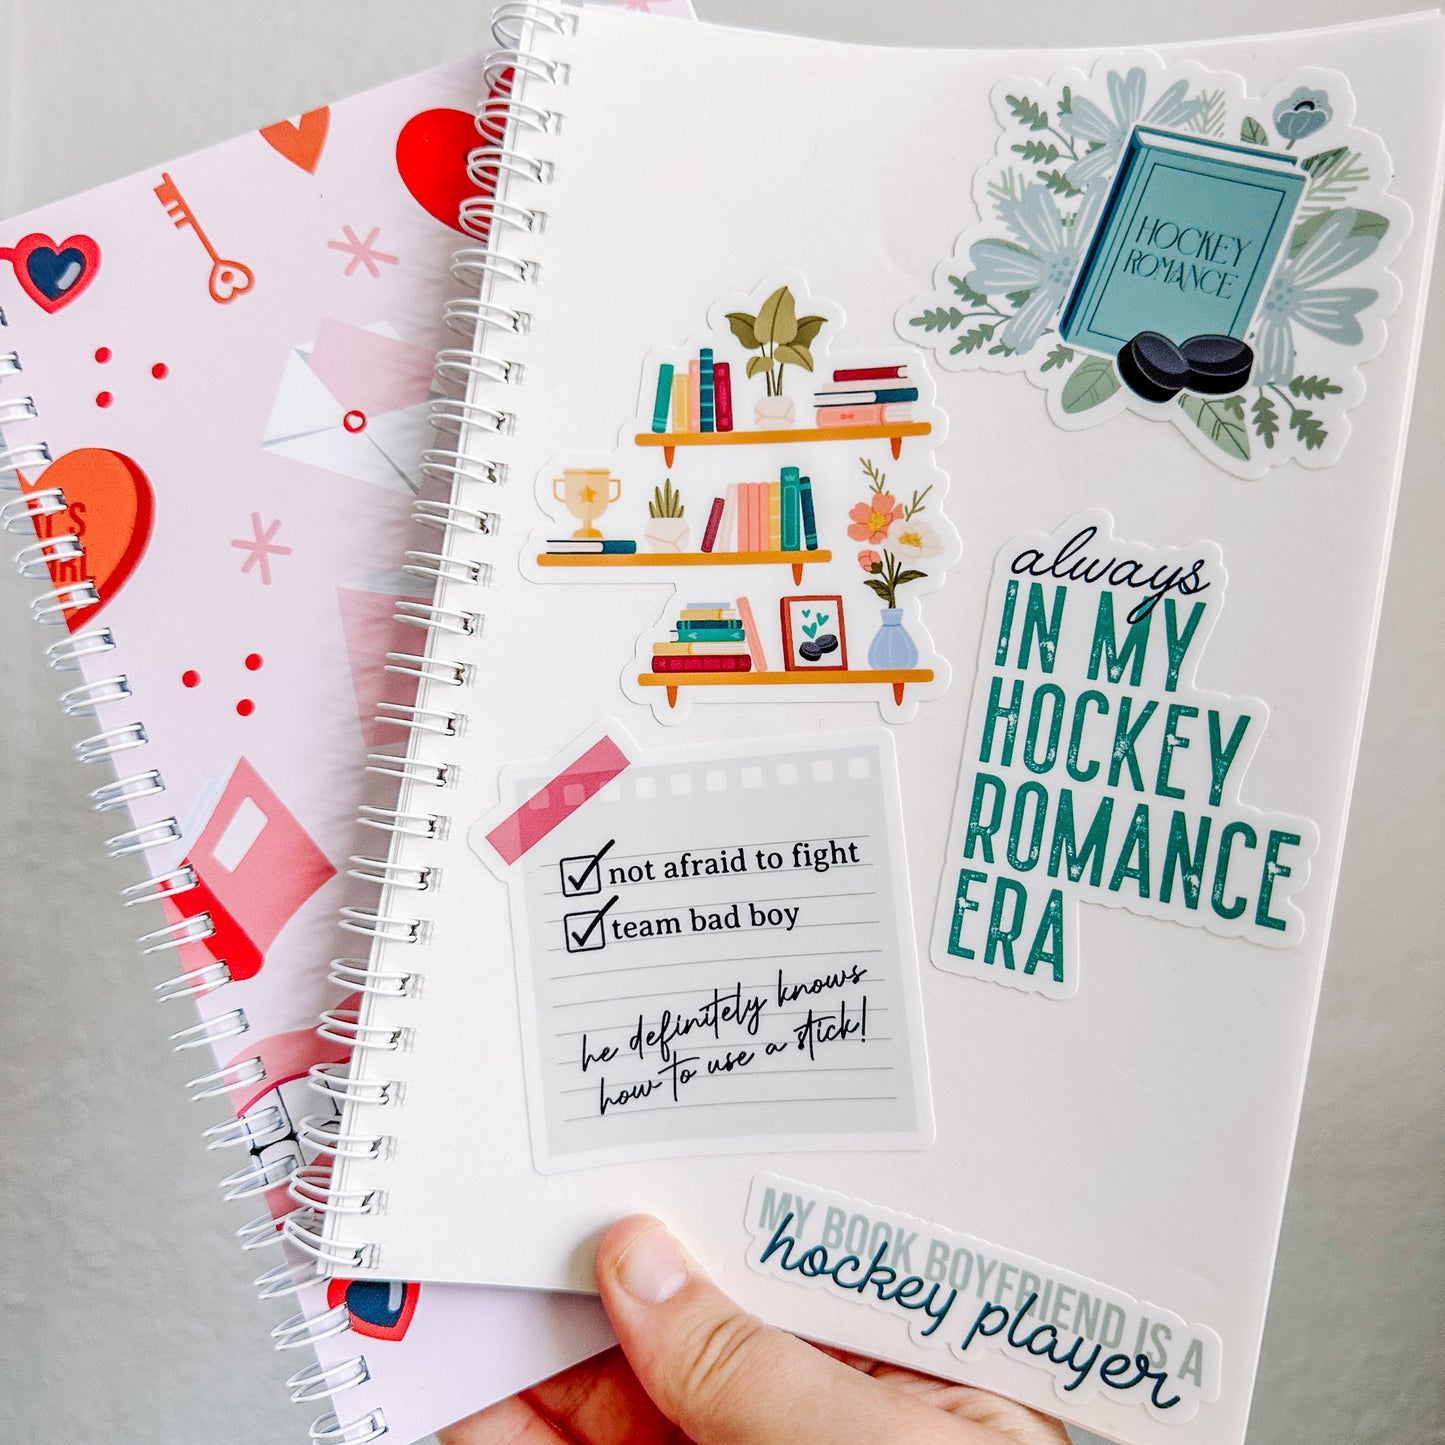 HOCKEY
ROMANCE
always
IN MY
HOCKEY
ROMANCE
ERA
not afraid to fight
team bad boy
he definitely knows
how to use a stick!
MY BOOK BOYFRIEND IS A
hockey player